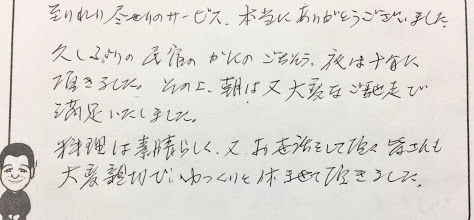 至れり尽せりのサービス、本当にありがとうございました。
久しぶりの民宿のかにのごちそう、夜は十分に
頂きました。その上、朝は又大変なご馳走で
満足いたしました。
料理は素晴らしく、又、お世話をして頂く皆さんも
大変親切でゆっくりと休ませて頂きました。